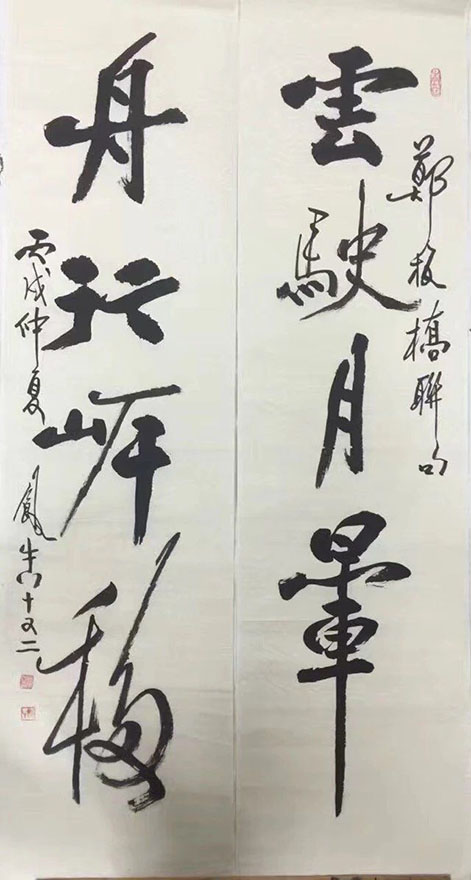 鄭板橋聯句
雲駛月暈
舟行岸移
丙戌仲夏
鳳 十又二